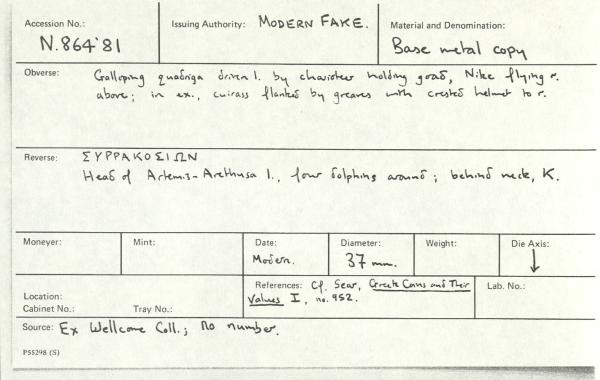 Accession No.: N.864'81
Issuing Authority: MODERN FAKE.
Material and Denomination: Base metal copy
Obverse: Galloping quadriga driven l. by charioteer holding goad, Nike flying r.
above; in ex., cuirass flanked by greaves with crested helmet to r.
Reverse: ΣΥΡΡΑΚΟΣΙΩΝ
Head of Artemis-Arethusa l., four dolphins around; behind neck, K.
Moneyer:
Mint:
Date: Modern.
Diameter: 37 mm.
Weight:
Die Axis: ↓
Location:
Cabinet No.:
Tray No.:
References: Cf. Sear, Greek Coins and Their
Values I, no. 952.
Lab. No.:
Source: Ex Wellcome Coll.; no number.
P55298 (S)